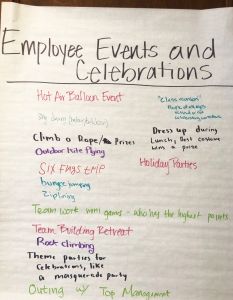 Employee Events and
Celebrations
Hot Air Balloon Event
"Class reunion"
Sky diving
Climb a Rope/ Prizes
Dress up during
Lunch, Best costume
win a prize
Outdoor kite flying
Six Flags trip
Holiday Parties
bungee jumping
Ziplining
Team work mini games - who has the highest points
Team Building Retreat
Rock climbing
Theme parties for
celebrations, like
a masquerade party
Outing w/ Top Management